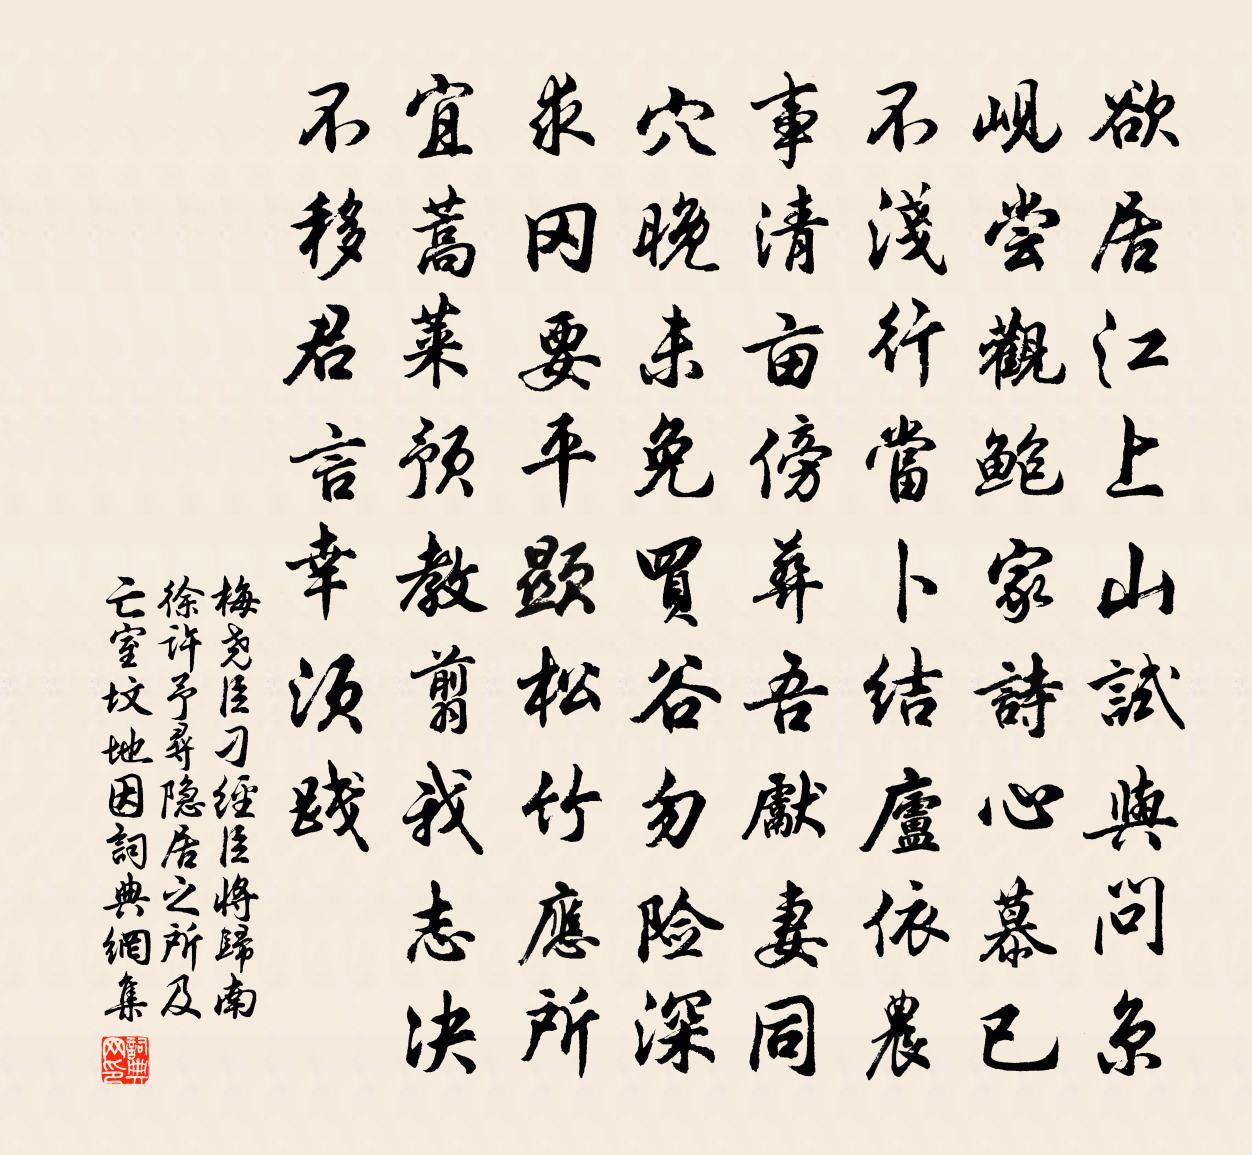 欲居江上山試與問京
峴嘗觀鮑家詩心慕已
不淺行當卜結廬依農
事清亩傍葬吾獻妻同
穴晚未免買谷勿险深
求冈要平顯松竹應所
宜蒿萊预教翦我志決
不移君言幸须踐
梅尧臣刁經臣將歸南
徐許予尋隐居之所及
亡室坟地因詞典網集
詞典
网印